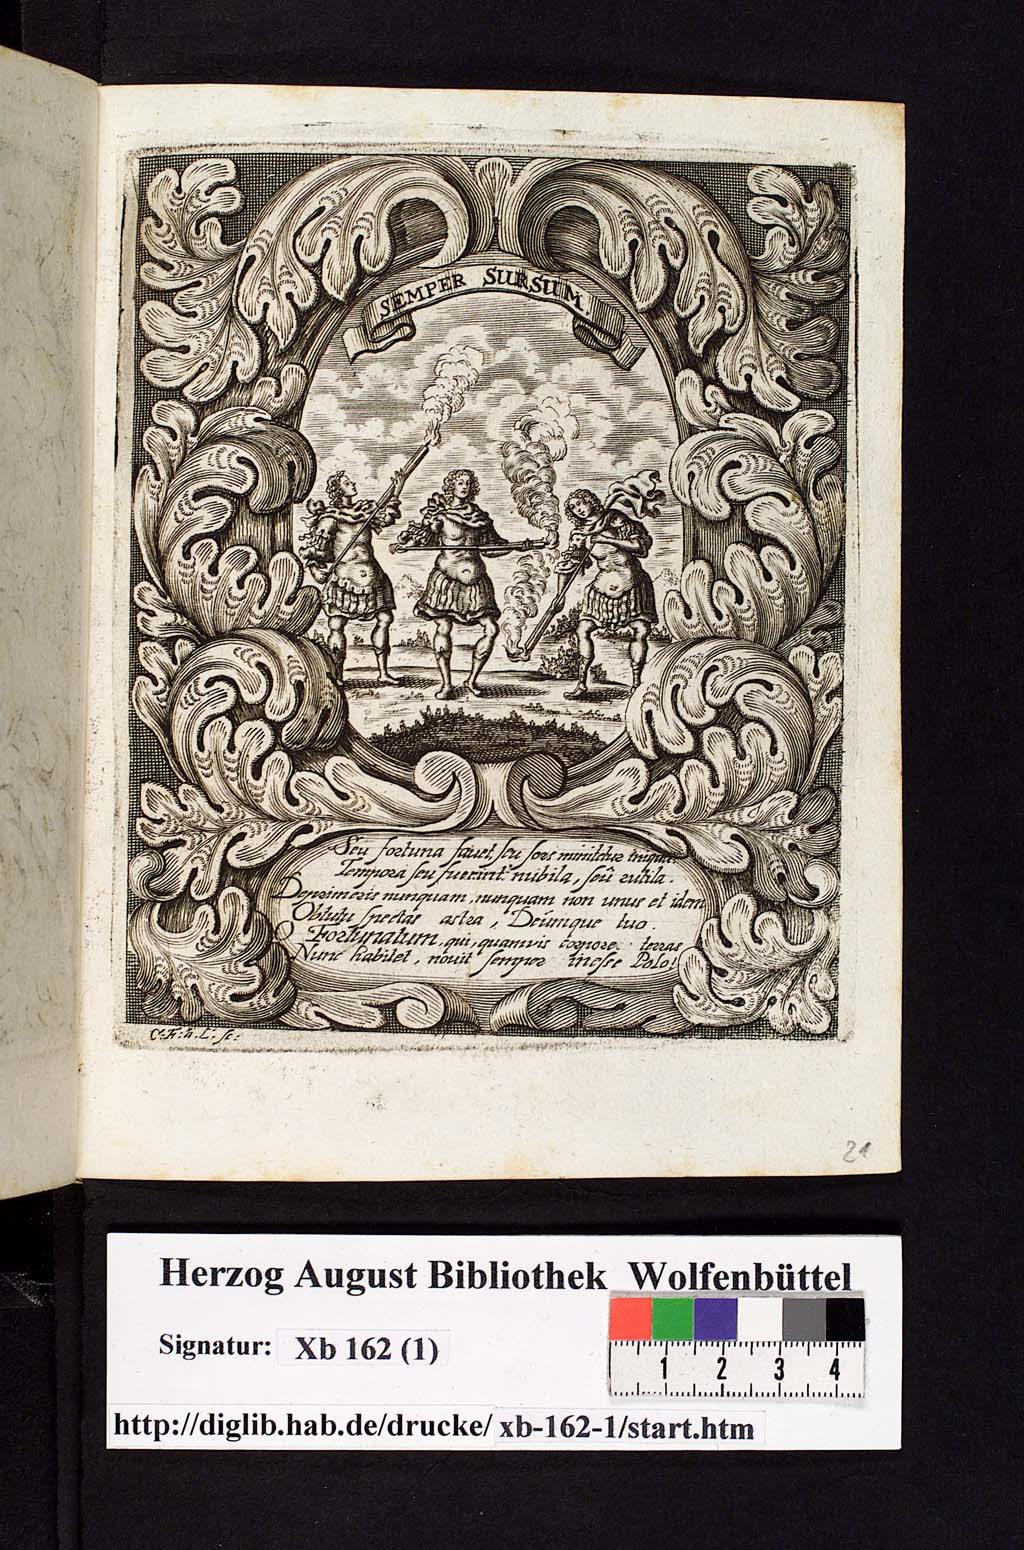 SEMPER SURSUM
Seu fortuna favet, seu sors minitatur iniqua:
Tempora seu fuerint nubila, seû rutila.
Deprimeris nunquam, nunquam non unus et idem
Obtutu spectas astra, Deumque tuo.
O Fortunatum, qui, quamvis corpore terras
Nunc habitet, novit semper inesse Polo!
C: F: à. L: sc:
21
Herzog August Bibliothek Wolfenbüttel
Signatur: Xb 162 (1)
1 2 3 4
http://diglib.hab.de/drucke/ xb-162-1/start.htm